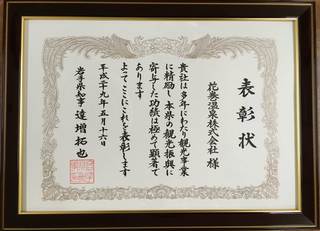 表彰状
花巻温泉株式会社 様
貴社は多年にわたり観光事業
に精励し本県の観光振興に
寄与した功績は極めて顕著で
あります
よってここにこれを表彰します
平成二十九年五月十六日
岩手県知事 達増拓也